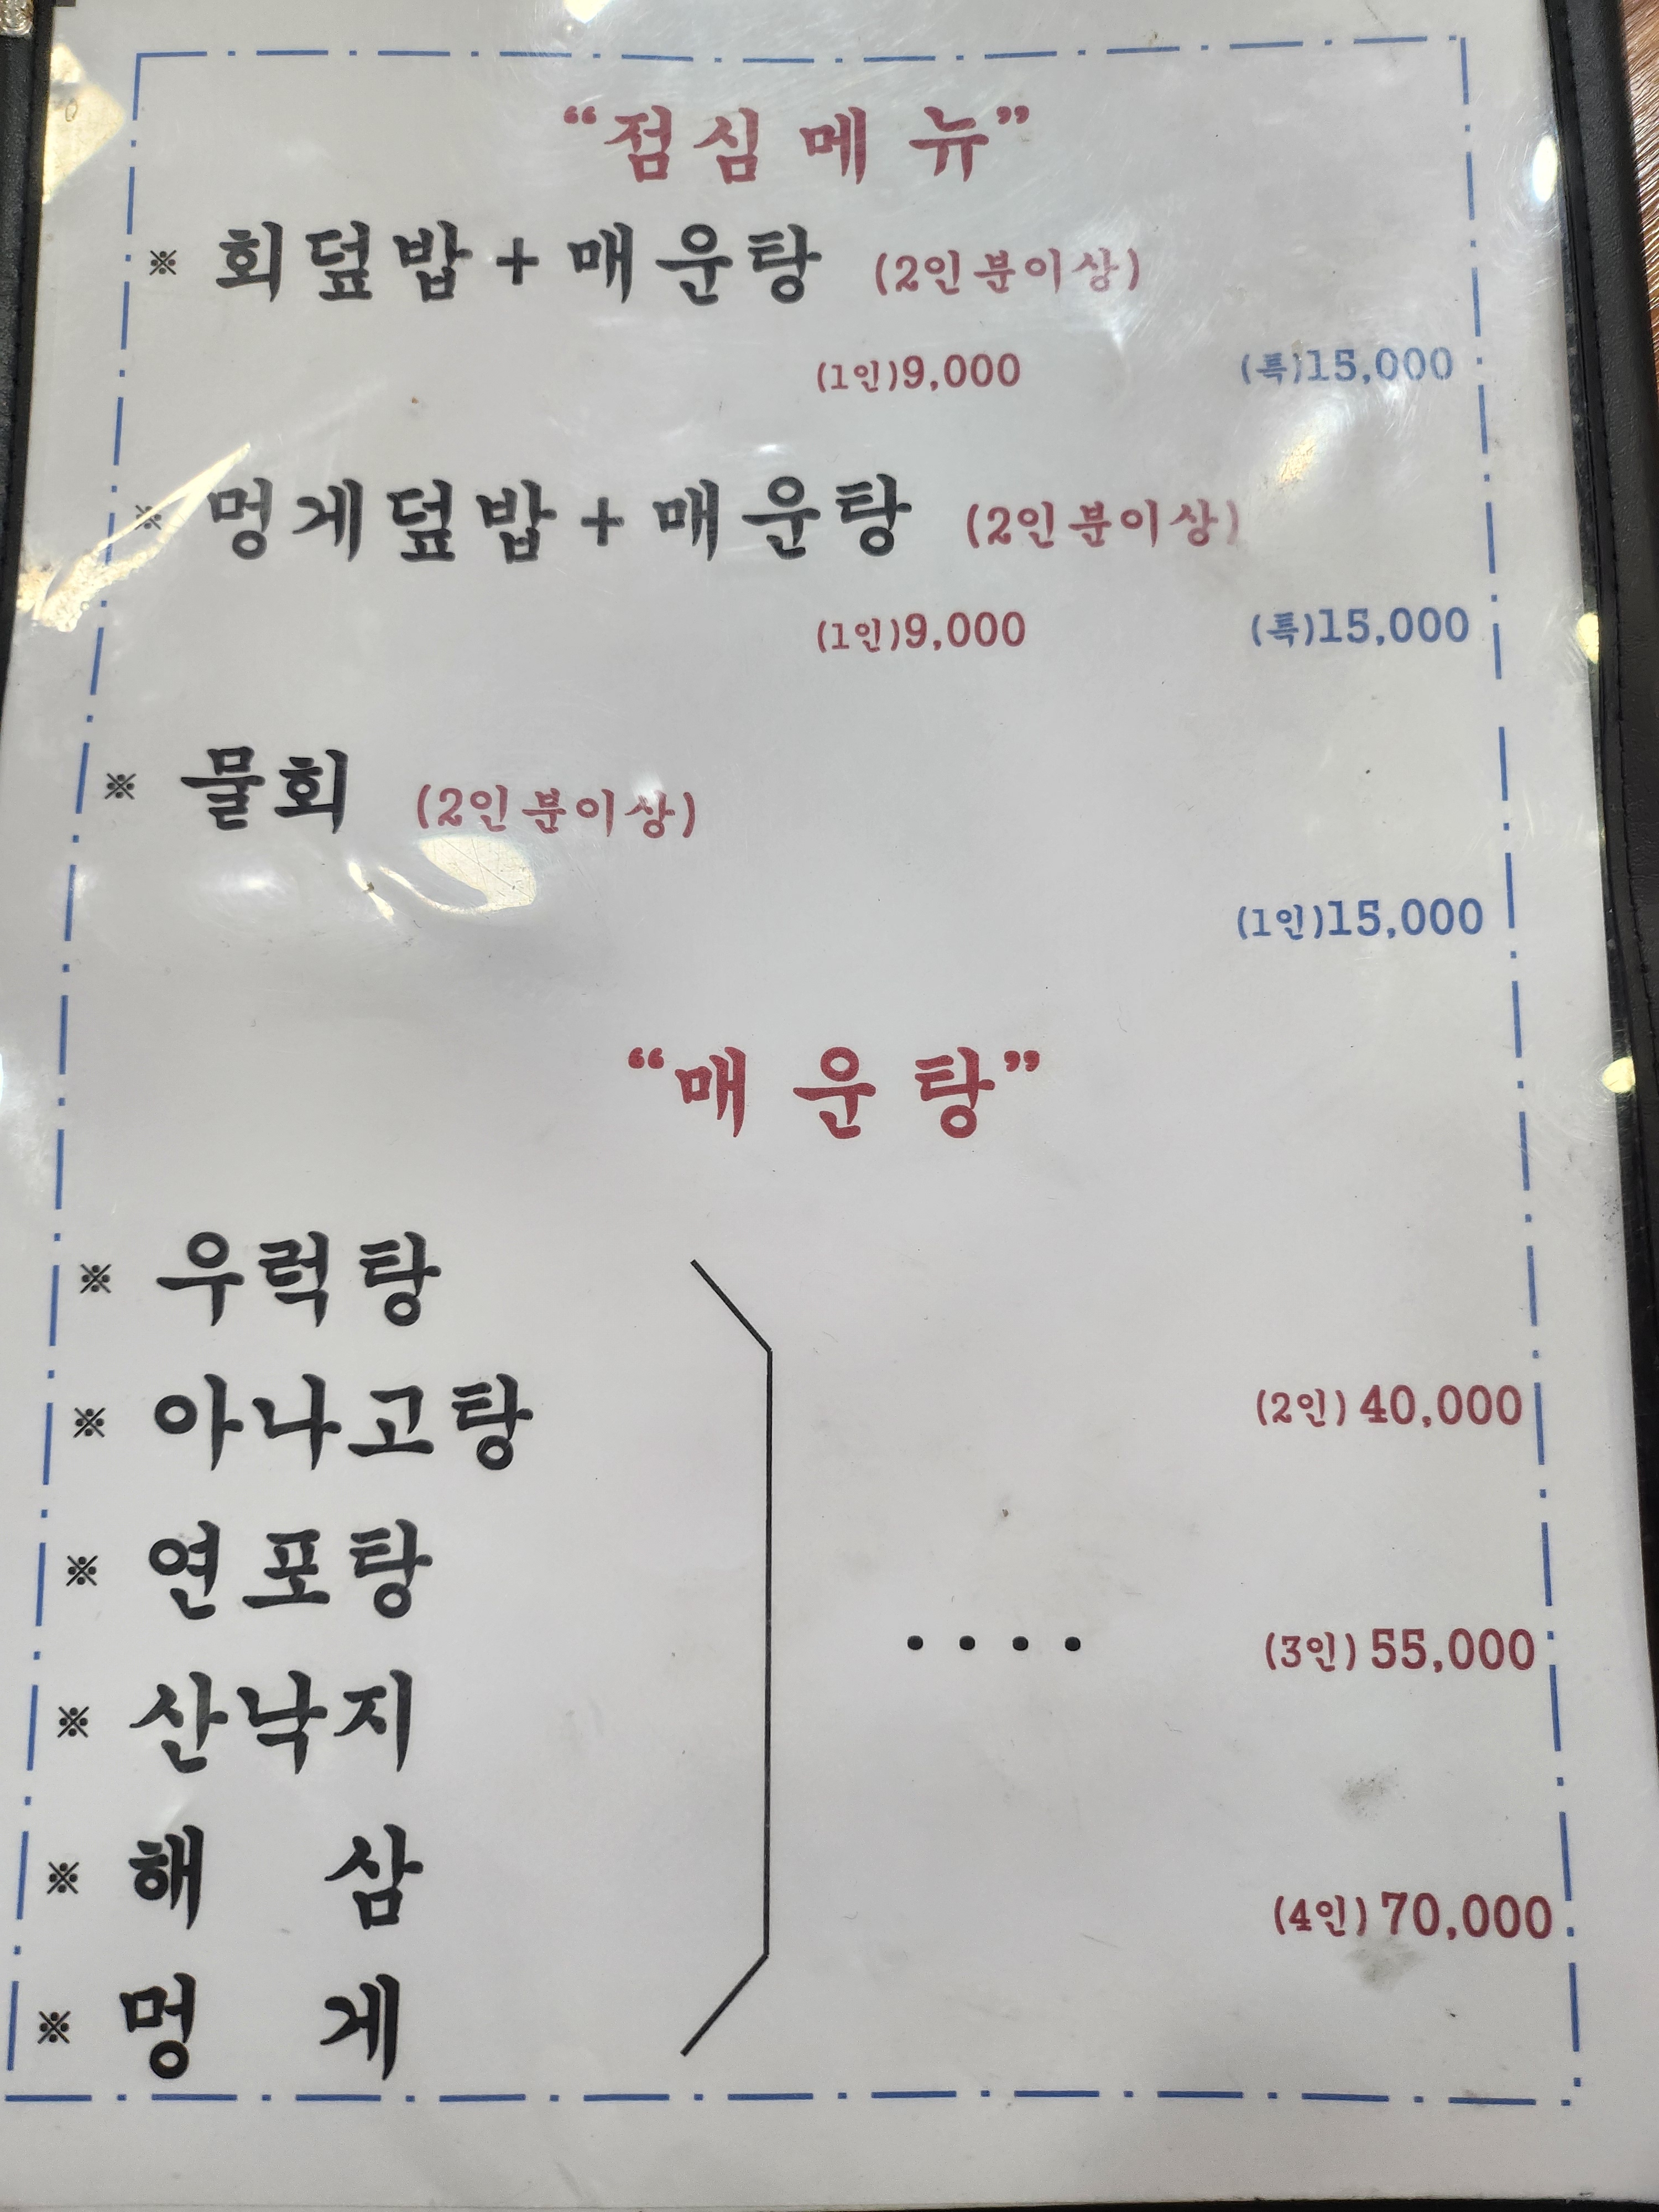 “점심메뉴”
※ 회덮밥+매운탕 (2인분이상)
(1인)9,000 (특)15,000
※ 멍게덮밥+매운탕 (2인분이상)
(1인)9,000 (특)15,000
※ 물회 (2인분이상)
(1인)15,000
“매운탕”
※ 우럭탕
※ 아나고탕
(2인) 40,000
※ 연포탕
.... (3인) 55,000
※ 산낙지
※ 해 삼
(4인) 70,000
※ 멍 게